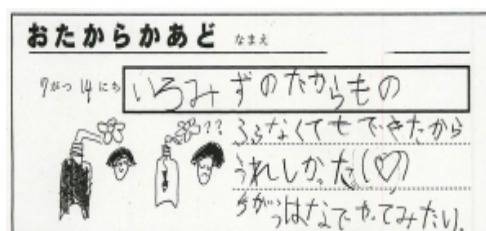 おたからかあど なまえ
7がつ 14にち いろみずのたからもの
??
ふくなくてもできたから
うれしかった(♡)
ちがうはなでやってみたい。